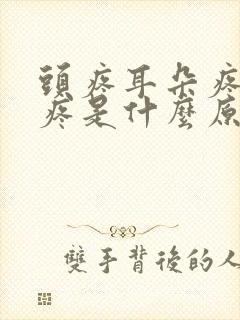 頭疼耳朵疼
疼是什麼原
雙手背後的人